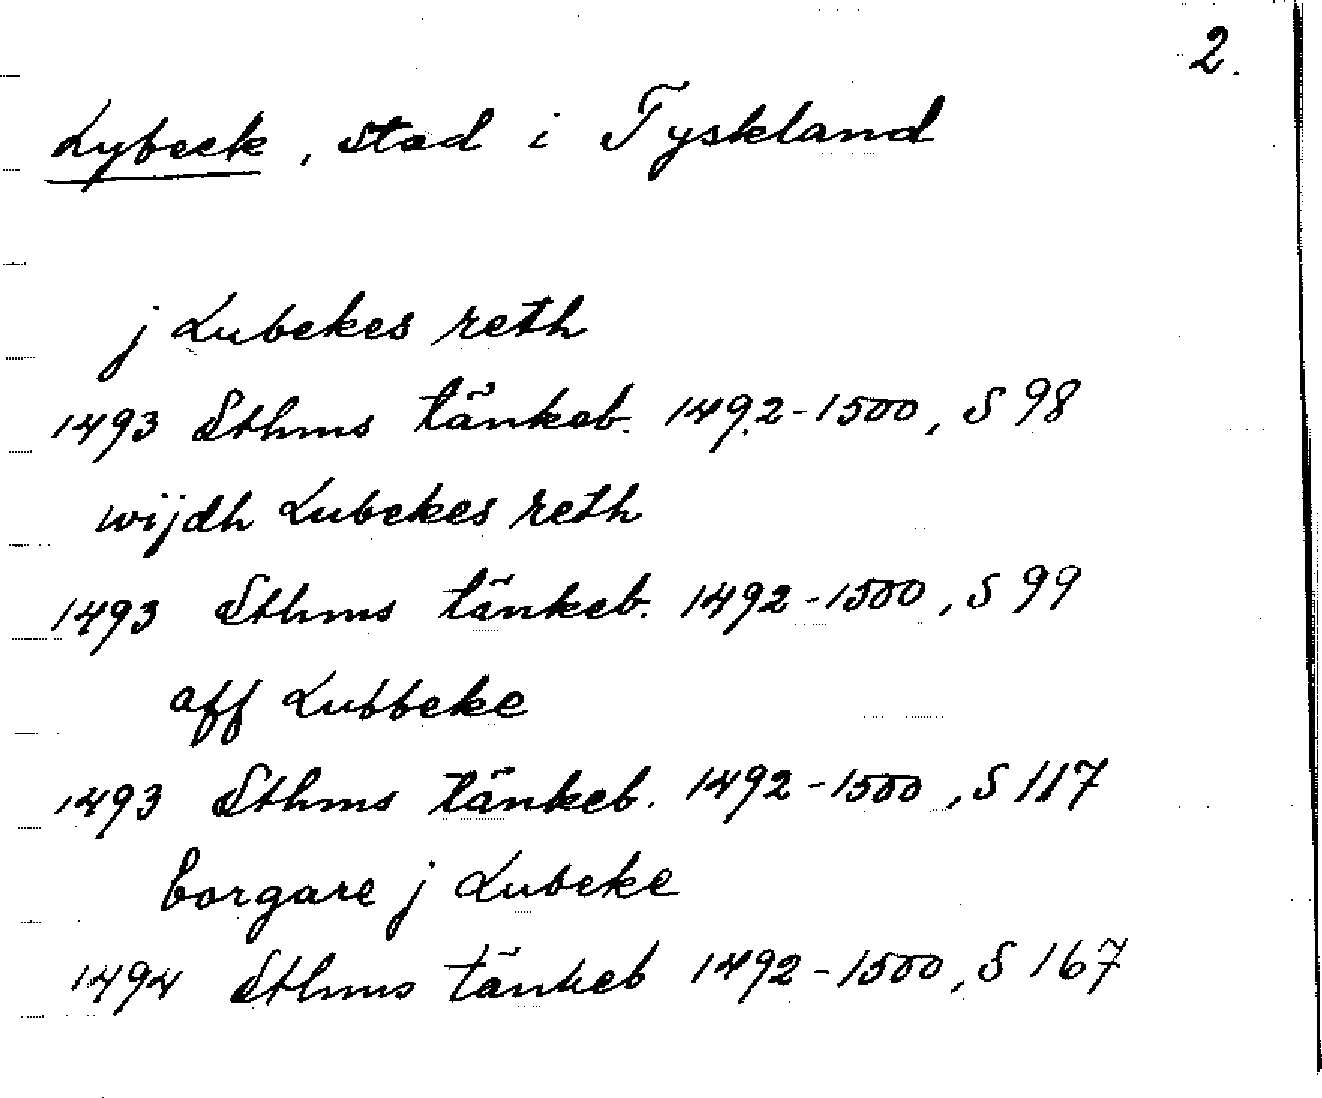 2.
Lybeck, stad i Tyskland
j Lubekes reth
1493 Sthms tänkeb. 1492-1500, S 98
wijdh Lubekes reth
1493 Sthms tänkeb. 1492-1500, S 99
aff Lubbeke
1493 Sthms tänkeb. 1492-1500, S 117
borgare j Lubeke
1494 Sthms tänkeb 1492-1500, S 167